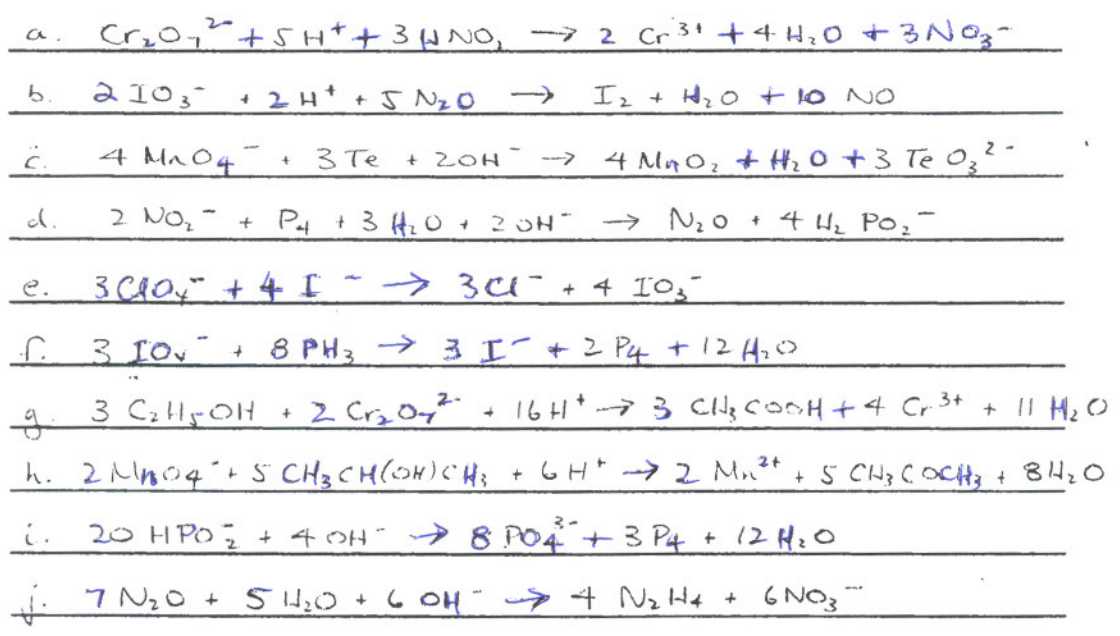 a. Cr₂O₇²⁻ + 5H⁺ + 3HNO₂ → 2 Cr³⁺ + 4H₂O + 3NO₃⁻
b. 2IO₃⁻ + 2H⁺ + 5N₂O → I₂ + H₂O + 10 NO
c. 4 MnO₄⁻ + 3Te + 2OH⁻ → 4MnO₂ + H₂O + 3TeO₃²⁻
d. 2 NO₂⁻ + P₄ + 3H₂O + 2OH⁻ → N₂O + 4H₂PO₂⁻
e. 3ClO₄⁻ + 4I⁻ → 3Cl⁻ + 4 IO₃⁻
f. 3 IO₄⁻ + 8PH₃ → 3I⁻ + 2P₄ + 12H₂O
g. 3 C₂H₅OH + 2Cr₂O₇²⁻ + 16H⁺ → 3 CH₃COOH + 4 Cr³⁺ + 11 H₂O
h. 2MnO₄⁻ + 5 CH₃CH(OH)CH₃ + 6H⁺ → 2 Mn²⁺ + 5 CH₃COCH₃ + 8H₂O
i. 20 HPO₂⁻ + 4OH⁻ → 8PO₄³⁻ + 3P₄ + 12H₂O
j. 7N₂O + 5H₂O + 6OH⁻ → 4 N₂H₄ + 6NO₃⁻